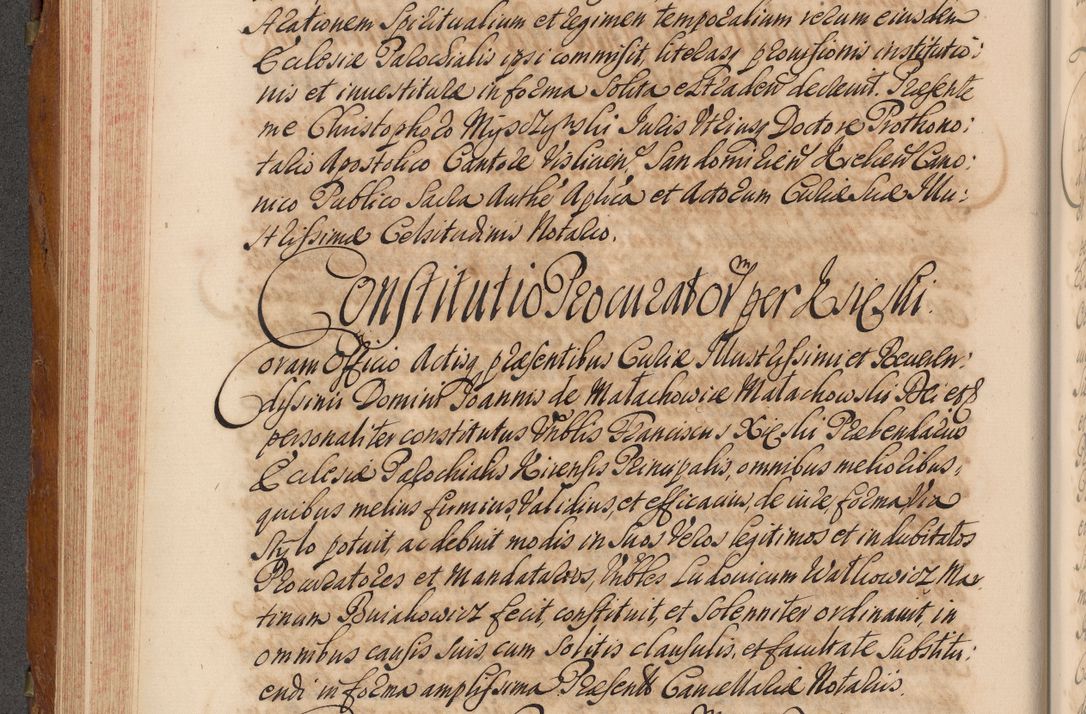 strationem Spiritualium et regimen temporalium rerum eiusdem
Ecclesiæ Parochialis ipsi commisit, literasq provisionis institutio:
nis et investituræ in forma solita extraden decrevit. Præsente
me Christophoro Juris Utriusq Doctore Prothono:
tario Apostolico Cantore Visliciens, Sandomirien Kielcen Cano:
nico Publico Sacra Authe Aplica et Actorum Curiæ Suæ Illu:
strissimæ Celsitudinis Notario.
Constitutio Procuratorum per Kręski.
Coram Officio Actisq præsentibus Curiæ Illustrissimi et Reveren:
dissimi Domini Joannis de Małachowice Małachowski Dei et&
personaliter constitutus Vnblis Franciscus Præbendarius
Ecclesiæ Parochialis Principalis, omnibus melioribus,
quibus melius firmius, validius, et efficacius, de iure, forma, via
stylo potuit, ac debuit modis in suos veros legitimos et indubitatos
Procuratores et Mandatarios, Vnbles Ludovicum Watkowicz Mar
tinum fecit, constituit, et solenniter ordinavit, in
omnibus causis suis cum solitis clausulis, et facultate substitu:
endi in forma amplissima. Præsent Cancellariæ Notariis.